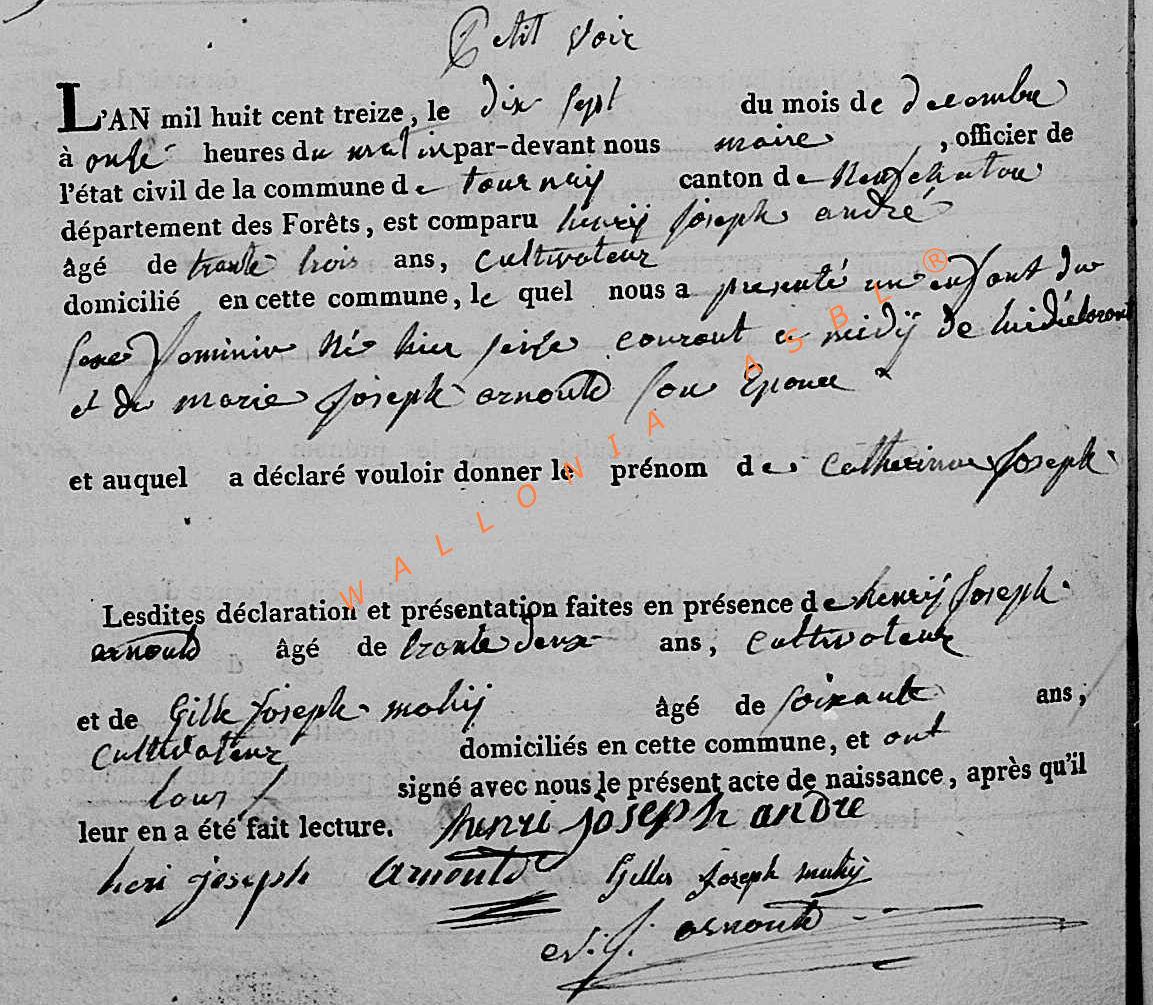 Petit Voir
L'AN mil huit cent treize, le dix sept du mois de decembre
à onse heures du matin par-devant nous maire, officier de
l'état civil de la commune de tournay canton de Neufchateau
département des Forêts, est comparu henrij joseph andré
âgé de trante trois ans, cultivateur
domicilié en cette commune, le quel nous a presenté un enfant du
sexe feminin né hier seise courant a midij de lui déclarant
et de marie joseph arnould son Epouce
et auquel a déclaré vouloir donner le prénom de Catherinne joseph
Lesdites déclaration et présentation faites en présence de henrij joseph
arnould âgé de trante deux ans, cultivateur
et de Gille joseph mahij âgé de soixante ans,
cultivateur domiciliés en cette commune, et ont
tous signé avec nous le présent acte de naissance, après qu'il
leur en a été fait lecture. henri joseph andre
heri joseph arnould Gilles joseph mahij
arnould
WALLONIA ASBL ®